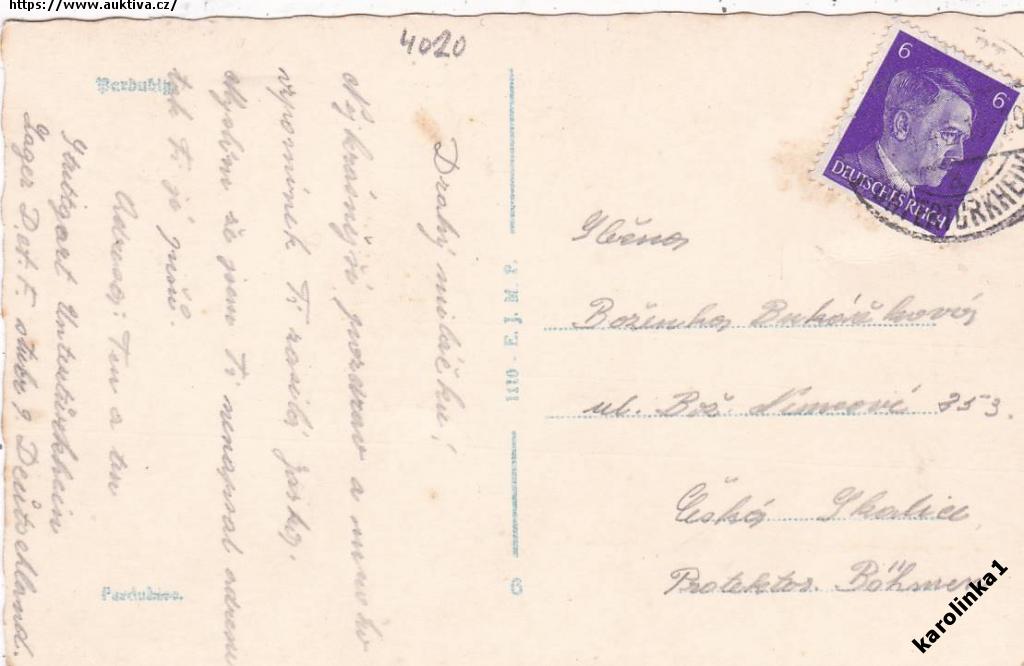 https://www.auktiva.cz/
4020
Pardubitz.
Pardubice.
Drahý miláčku!
Nejkrásnější pozdrav a mnoho
vzpomínek Ti zasílá
Myslím že jsem Ti nenapsal adresu
tak Ti jí píšu.
Adresa: Tu a ten
Stuttgart Untertürkheim
Lager D. stube 9. Deutschland.
1110 - E. J. M. P.
6
6
6
DEUTSCHES REICH
Slečna
Boženka Bukáčková
ul. Bož. Němcové 353.
Česká Skalice
Protektor. Böhmen
karolinka1